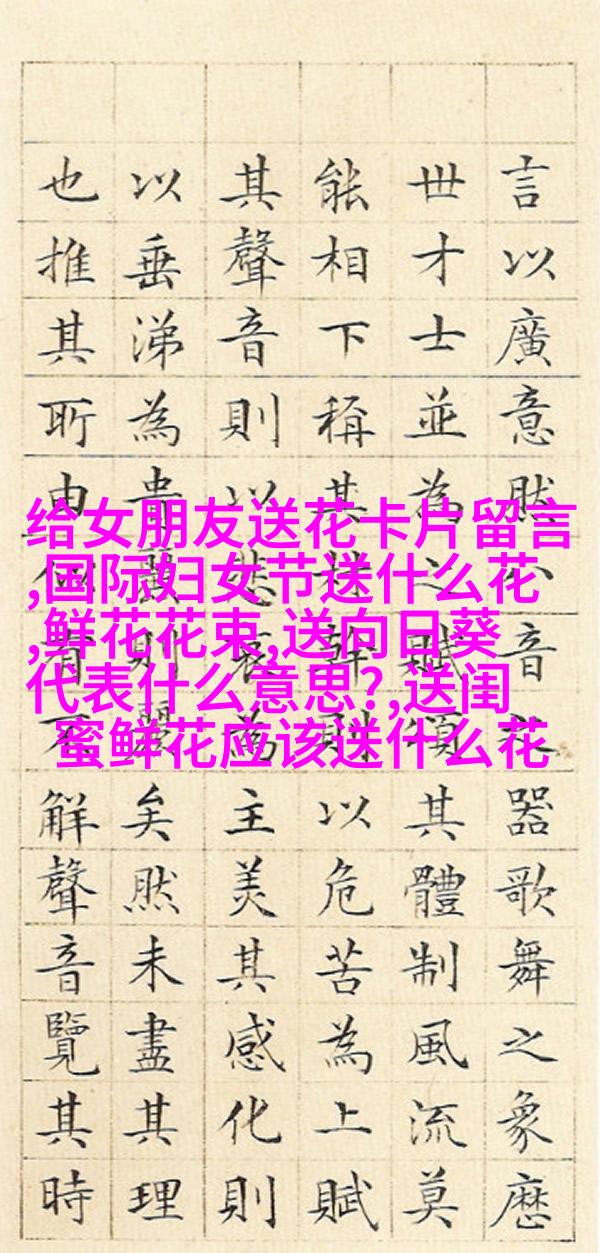 言以廣意然音器歌舞之象歷
世才士並為之賦頌其體制風流莫
能相下稱其材幹則以危苦為上賦
其聲音則以悲哀為主美其感化則
以垂涕為貴麗則麗矣然未盡其理
也推其所由不解聲音覽其時
给女朋友送花卡片留言
,国际妇女节送什么花
,鲜花花束,送向日葵
代表什么意思?,送闺
蜜鲜花应该送什么花